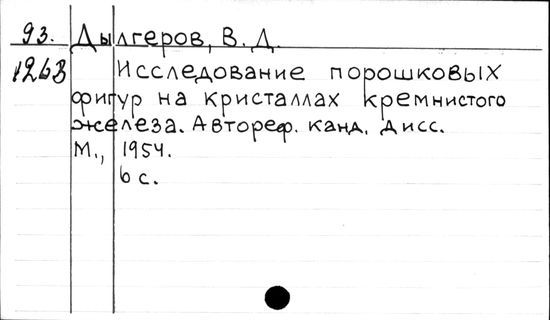 93. Дылгеров, В. Д.
1263 Исследование порошковых
фигур на кристаллах кремнистого
железа. Автореф. канд. дисс.
М., 1954.
6 с.